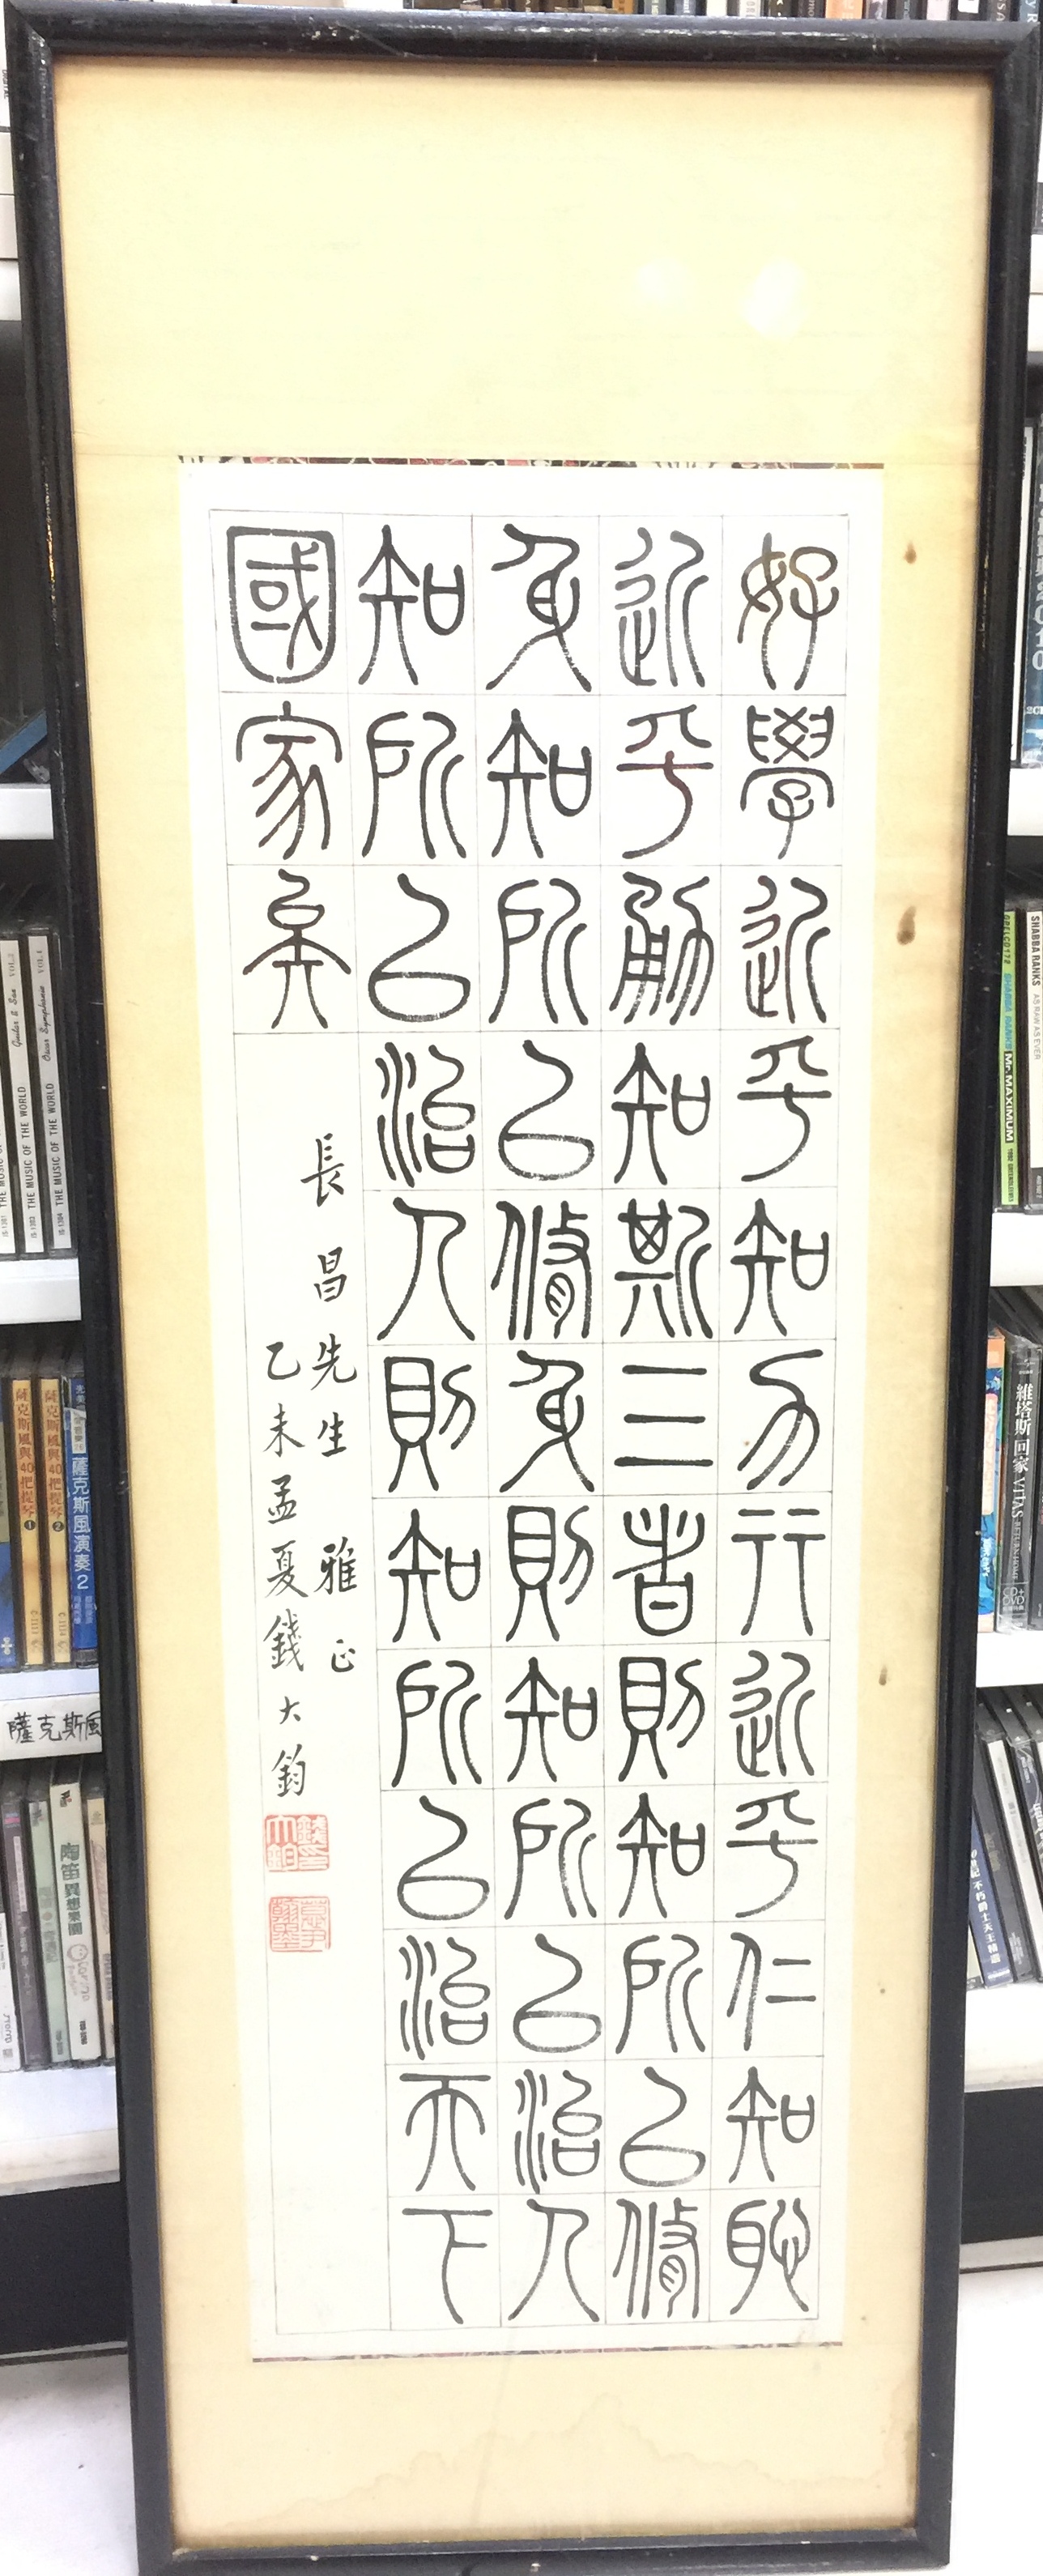 好學近乎知力行近乎仁知恥
近乎勇知斯三者則知所以修
身知所以修身則知所以治人
知所以治人則知所以治天下
國家矣
長昌先生雅正
乙未孟夏錢大鈞
錢大鈞印
慕尹翰墨
THE MUSIC OF THE WORLD
Guitar & Sax VOL.2
THE MUSIC OF THE WORLD
Oscar Symphonic VOL.1
薩克斯風與40把提琴 1
薩克斯風與40把提琴 2
薩克斯風演奏 2
薩克斯風
陶笛異想樂園
SHABBA RANKS
Mr. MAXIMUM
SHABBA RANKS AS RAW AS EVER
維塔斯 回家 VITAS RETURN HOME
CD+DVD